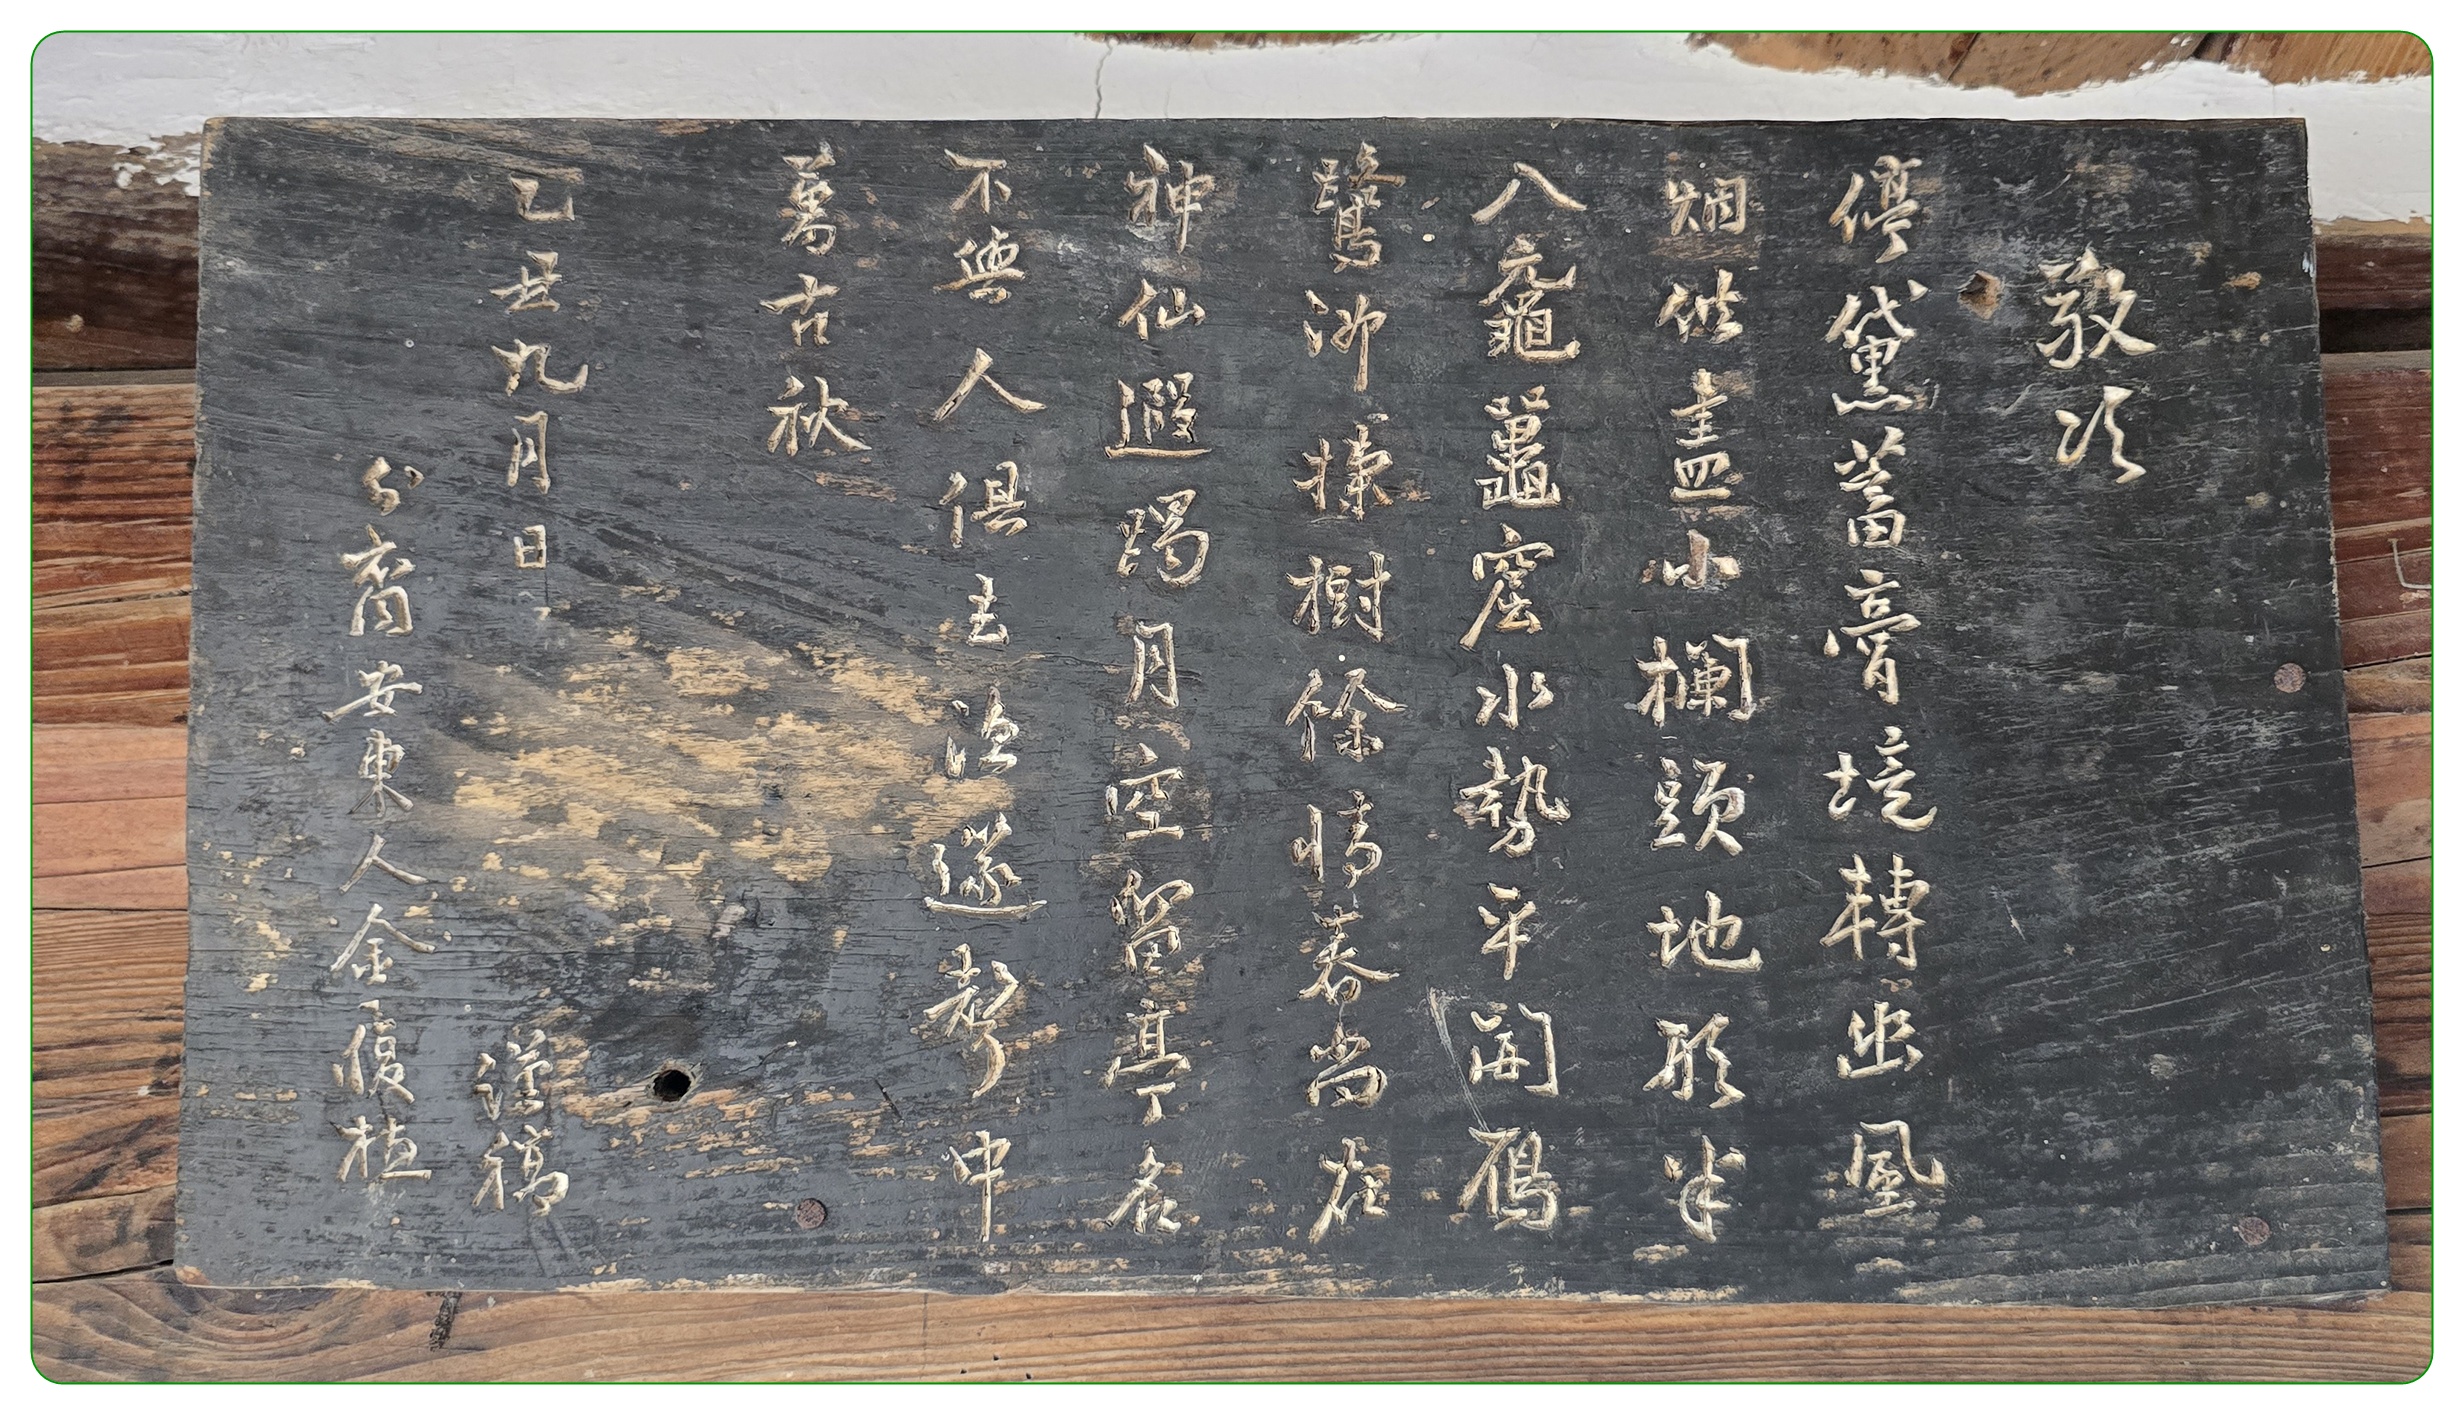 敬次
停黛蓄膏境轉幽風
烟供盡小欄頭地形半
入黿鼉窟水勢平開鴈
鷺洲揀樹餘情春尚在
神仙遐躅月空留亭名
不與人俱去澄邃聲中
萬古秋
乙丑九月日 謹稿
外裔安東人金復植